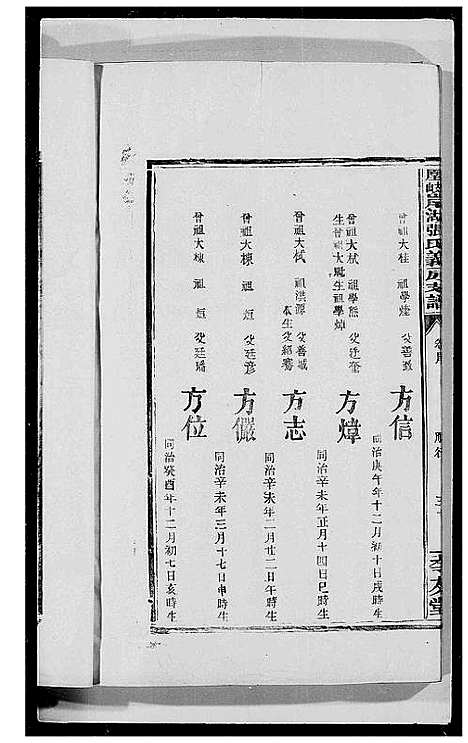 張氏義房支譜
孝友堂
曾祖大桂 祖學煌 父善致
方信
同治庚午年十二月初十日戌時生
曾祖大栻 祖學熊 父廷奎
生曾祖大 生祖學焯
方煒
同治辛未年正月十四日巳時生
曾祖大栻 祖洪源 父善城
本生父紹騫
方志
同治辛未年二月廿二日午時生
曾祖大棟 祖 烜 父廷彥
方儼
同治辛未年三月十七日申時生
曾祖大棟 祖 烜 父廷璠
方位
同治癸酉年十二月初七日亥時生